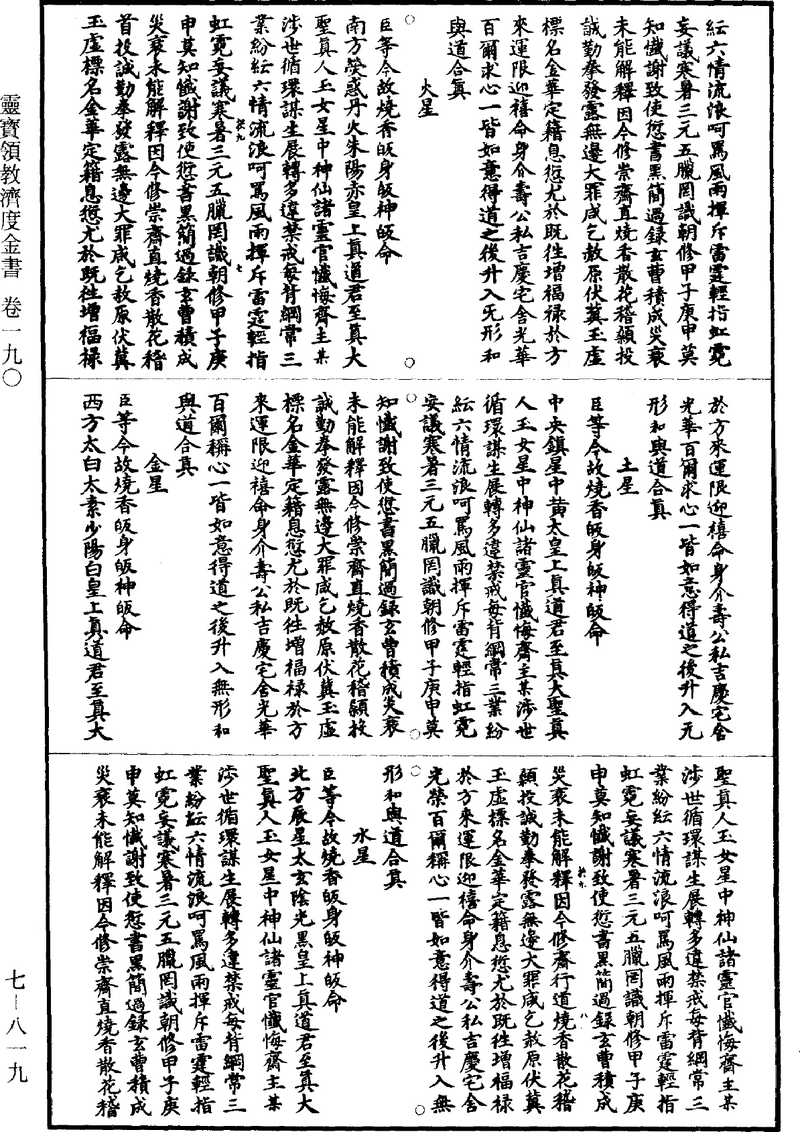 紜六情流浪呵罵風雨揮斥雷霆輕指虹霓
妄議寒暑三元五臘罔識朝修甲子庚申莫
知懺謝致使愆書黑簡過録玄曹積成災衰
未能解釋因今修崇齋直燒香散花稽顙投
誠勤拳發露無邊大罪咸乞赦原伏冀玉虛
標名金華定籍息愆尤於既徃增福禄於方
來運限迎禧命身介壽公私吉慶宅舍光華
百爾求心一皆如意得道之後升入旡形和
與道合真
火星
臣等今故燒香皈身皈神皈命
南方熒惑丹火朱陽赤皇上真道君至真大
聖真人玉女星中神仙諸靈官懺悔齋主某
涉世循環謀生展轉多違禁戒每背綱常三
業紛紜六情流浪呵罵風雨揮斥雷霆輕指
虹霓妄議寒暑三元五臘罔識朝修甲子庚
申莫知懺謝致使愆書黑簡過録玄曹積成
災衰未能解釋因今修崇齋直燒香散花稽
首投誠勤拳發露無邊大罪咸乞赦原伏冀
玉虛標名金華定籍息愆尤於既徃增福禄
於方來運限迎禧命身介壽公私吉慶宅舍
光華百爾求心一皆如意得道之後升入元
形和與道合真
土星
臣等今故燒香皈身皈神皈命
中央鎮星中黄太皇上真道君至真大聖真
人玉女星中神仙諸靈官懺悔齋主某涉世
循環謀生展轉多違禁戒每背綱常三業紛
紜六情流浪呵罵風雨揮斥雷霆輕指虹霓
妄議寒暑三元五臘罔識朝修甲子庚申莫
知懺謝致使愆書黑簡過録玄曹積成災衰
未能解釋因今修崇齋直燒香散花稽顙投
誠勤拳發露無邊大罪咸乞赦原伏冀玉虛
標名金華定籍息愆尤於既徃增福禄於方
來運限迎禧命身介壽公私吉慶宅舍光華
百爾稱心一皆如意得道之後升入無形和
與道合真
金星
臣等今故燒香皈身皈神皈命
西方太白太素少陽白皇上真道君至真大
聖真人玉女星中神仙諸靈官懺悔齋主某
涉世循環謀生展轉多違禁戒每背綱常三
業紛紜六情流浪呵罵風雨揮斥雷霆輕指
虹霓妄議寒暑三元五臘罔識朝修甲子庚
申莫知懺謝致使愆書黑簡過録玄曹積成
災衰未能解釋因今修齋行道燒香散花稽
顙投誠勤拳發露無邊大罪咸乞赦原伏冀
玉虛標名金華定籍息愆尤於既徃增福禄
於方來運限迎禧命身介壽公私吉慶宅舍
光榮百爾稱心一皆如意得道之後升入無
形和與道合真
水星
臣等今故燒香皈身皈神皈命
北方辰星太玄陰光黑皇上真道君至真大
聖真人玉女星中神仙諸靈官懺悔齋主某
涉世循環謀生展轉多違禁戒每背綱常三
業紛紜六情流浪呵罵風雨揮斥雷霆輕指
虹霓妄議寒暑三元五臘罔識朝修甲子庚
申莫知懺謝致使愆書黑簡過録玄曹積成
災衰未能解釋因今修崇齋直燒香散花稽
靈寶領教濟度金書 卷一九〇
七－八一九